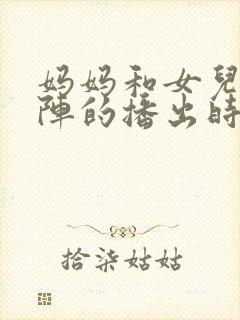 妈妈和女兒
陣的播出時
拾柒姑姑